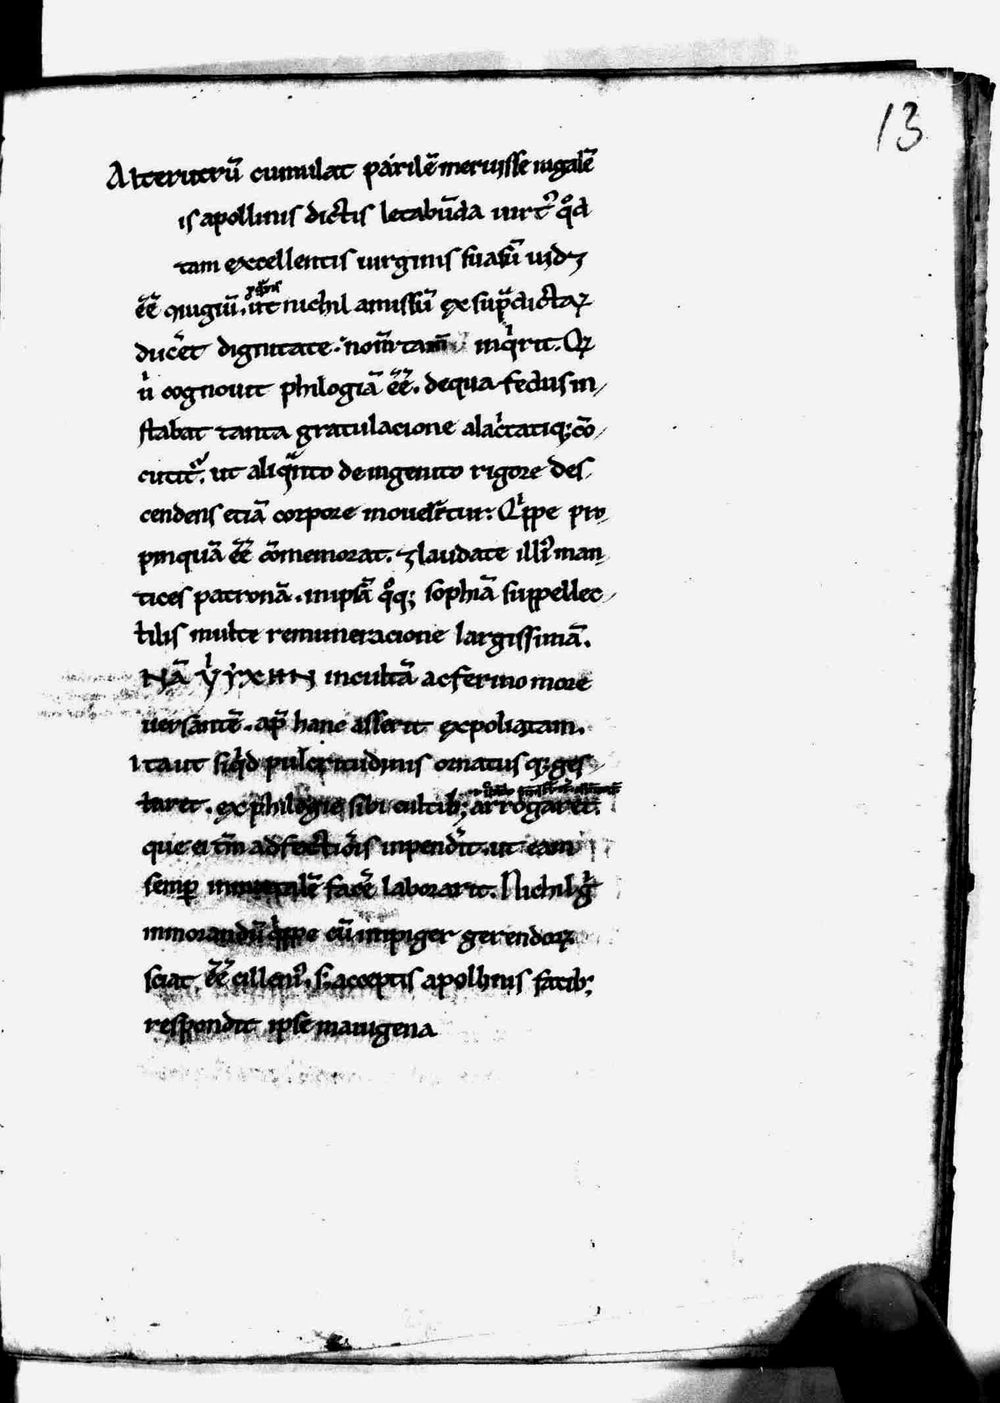 13
Alterutrū cumulat parilē meruisse iugalē
is apollinis dictis letabūda uirt᷒ qd̊
tam excellentis uirginis suasū uidꝫ
ēē ꝯiugiū. ut nichil amissū ex sup̄dictaꝝ
duceret dignitate. nom̄ tam̄ inqͥrit. Qꝝ
ůͥ cognouit philogiā ēē. de qua fedus in-
stabat tanta gratulacione alacͥtatiqꝫ cō-
cutit᷒. ut aliqͣnto de ingenito rigore des-
cendens etiā corpore mouerētur. Qͥppe pro-
pinquā ēē cōmemorat. ⁊ laudate illi᷒ man-
tices patronā. in ipsā qͦqꝫ sophiā suppellec-
tilis multe remuneracione largissimā.
Nā incultā ac ferino more
uersantē. ap̄ hanc asserit expoliatam.
ita ut siqͥd pulcritudinis ornatusqꝫ ges-
taret. ex philogie sibi cultibꝫ arrogaret.
que ei tm̄ inpendit. ut eam
semp̄ facē laborarit. Nichil gͥ
inmorandū qͥppe cū impiger gerendoꝝ
sciat ēē cilleni᷒. Sꝫ acceptis apollinis fatibꝫ
respondit ipse maiugena